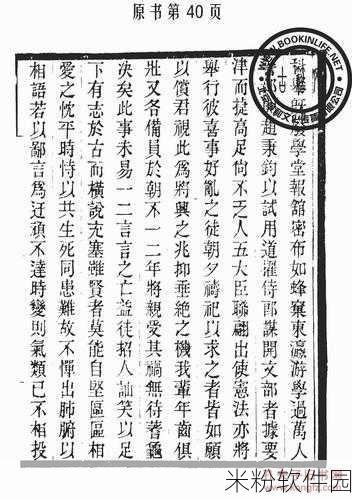 原书第 40 页
WWW.BOOKINLIFE.NET
科舉既廢學堂報舘密布如蜂窠東瀛游學過萬人
趙秉鈞以試用道擢侍郎謀開文部者據要
津而捷高足尙不乏人五大臣聯翩出使憲法亦將
舉行彼喜事好亂之徒朝夕禱祀以求之者皆如願
以償君視此爲將興之兆抑垂絶之機我輩年齒俱
壯又各備員於朝不一二年將親受其禍無待蓍龜
決矣此事未易一二言言之亡益徒招人訕笑以足
下有志於古而橫說充塞雖賢者莫能自堅區區相
愛之忱平時恃以共生死同患難故不憚出肺腑以
相語若以鄙言爲迂頑不達時變則氣類已不相投
米粉软件园